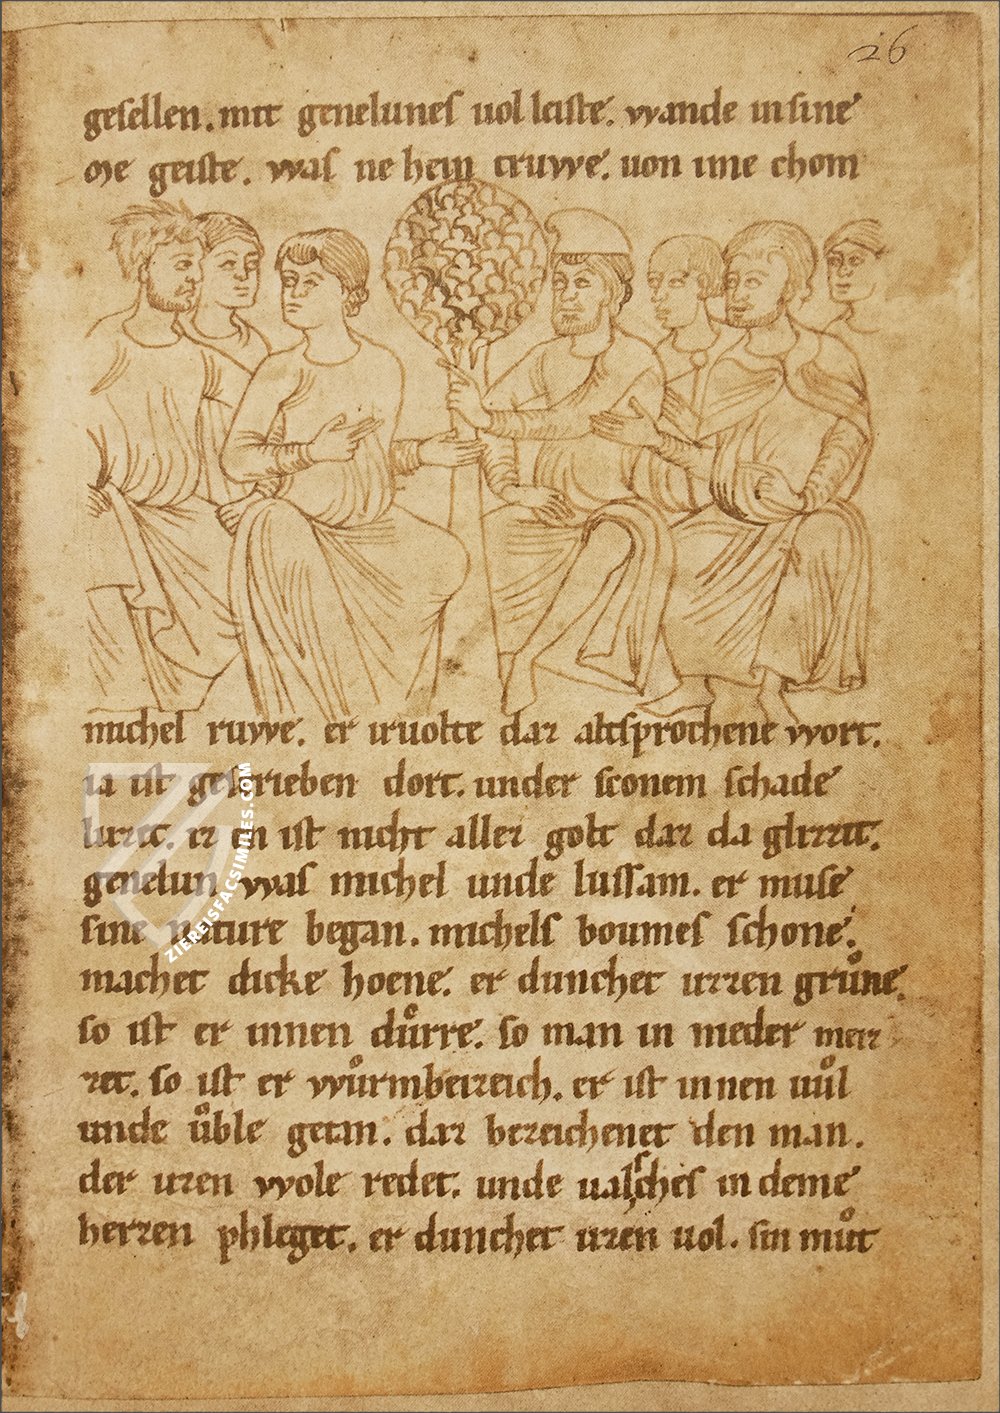 26
gesellen. mit genelunes uol leiste. wande in sine
me geiste. was ne hein truwe. uon ime chom
michel ruwe. er iruolte daz altsprochene wort.
ia ist gescrieben dort. under sconem schade
luzet. iz en ist nicht allez golt daz da glizzit.
genelun was michel unde lussam. er muse
sine nature began. michels boumes schone.
machet dicke hoene. er dunchet uzzen grůne.
so ist er innen důrre. so man in nieder meiz
zet. so ist er wůrmbeizeich. er ist innen uůl
unde ůble getan. daz bezeichenet den man.
der uzen wole redet. unde ualsches in deme
herzen phleget. er dunchet uzen uol. sin můt
ZIEREISFACSIMILES.COM